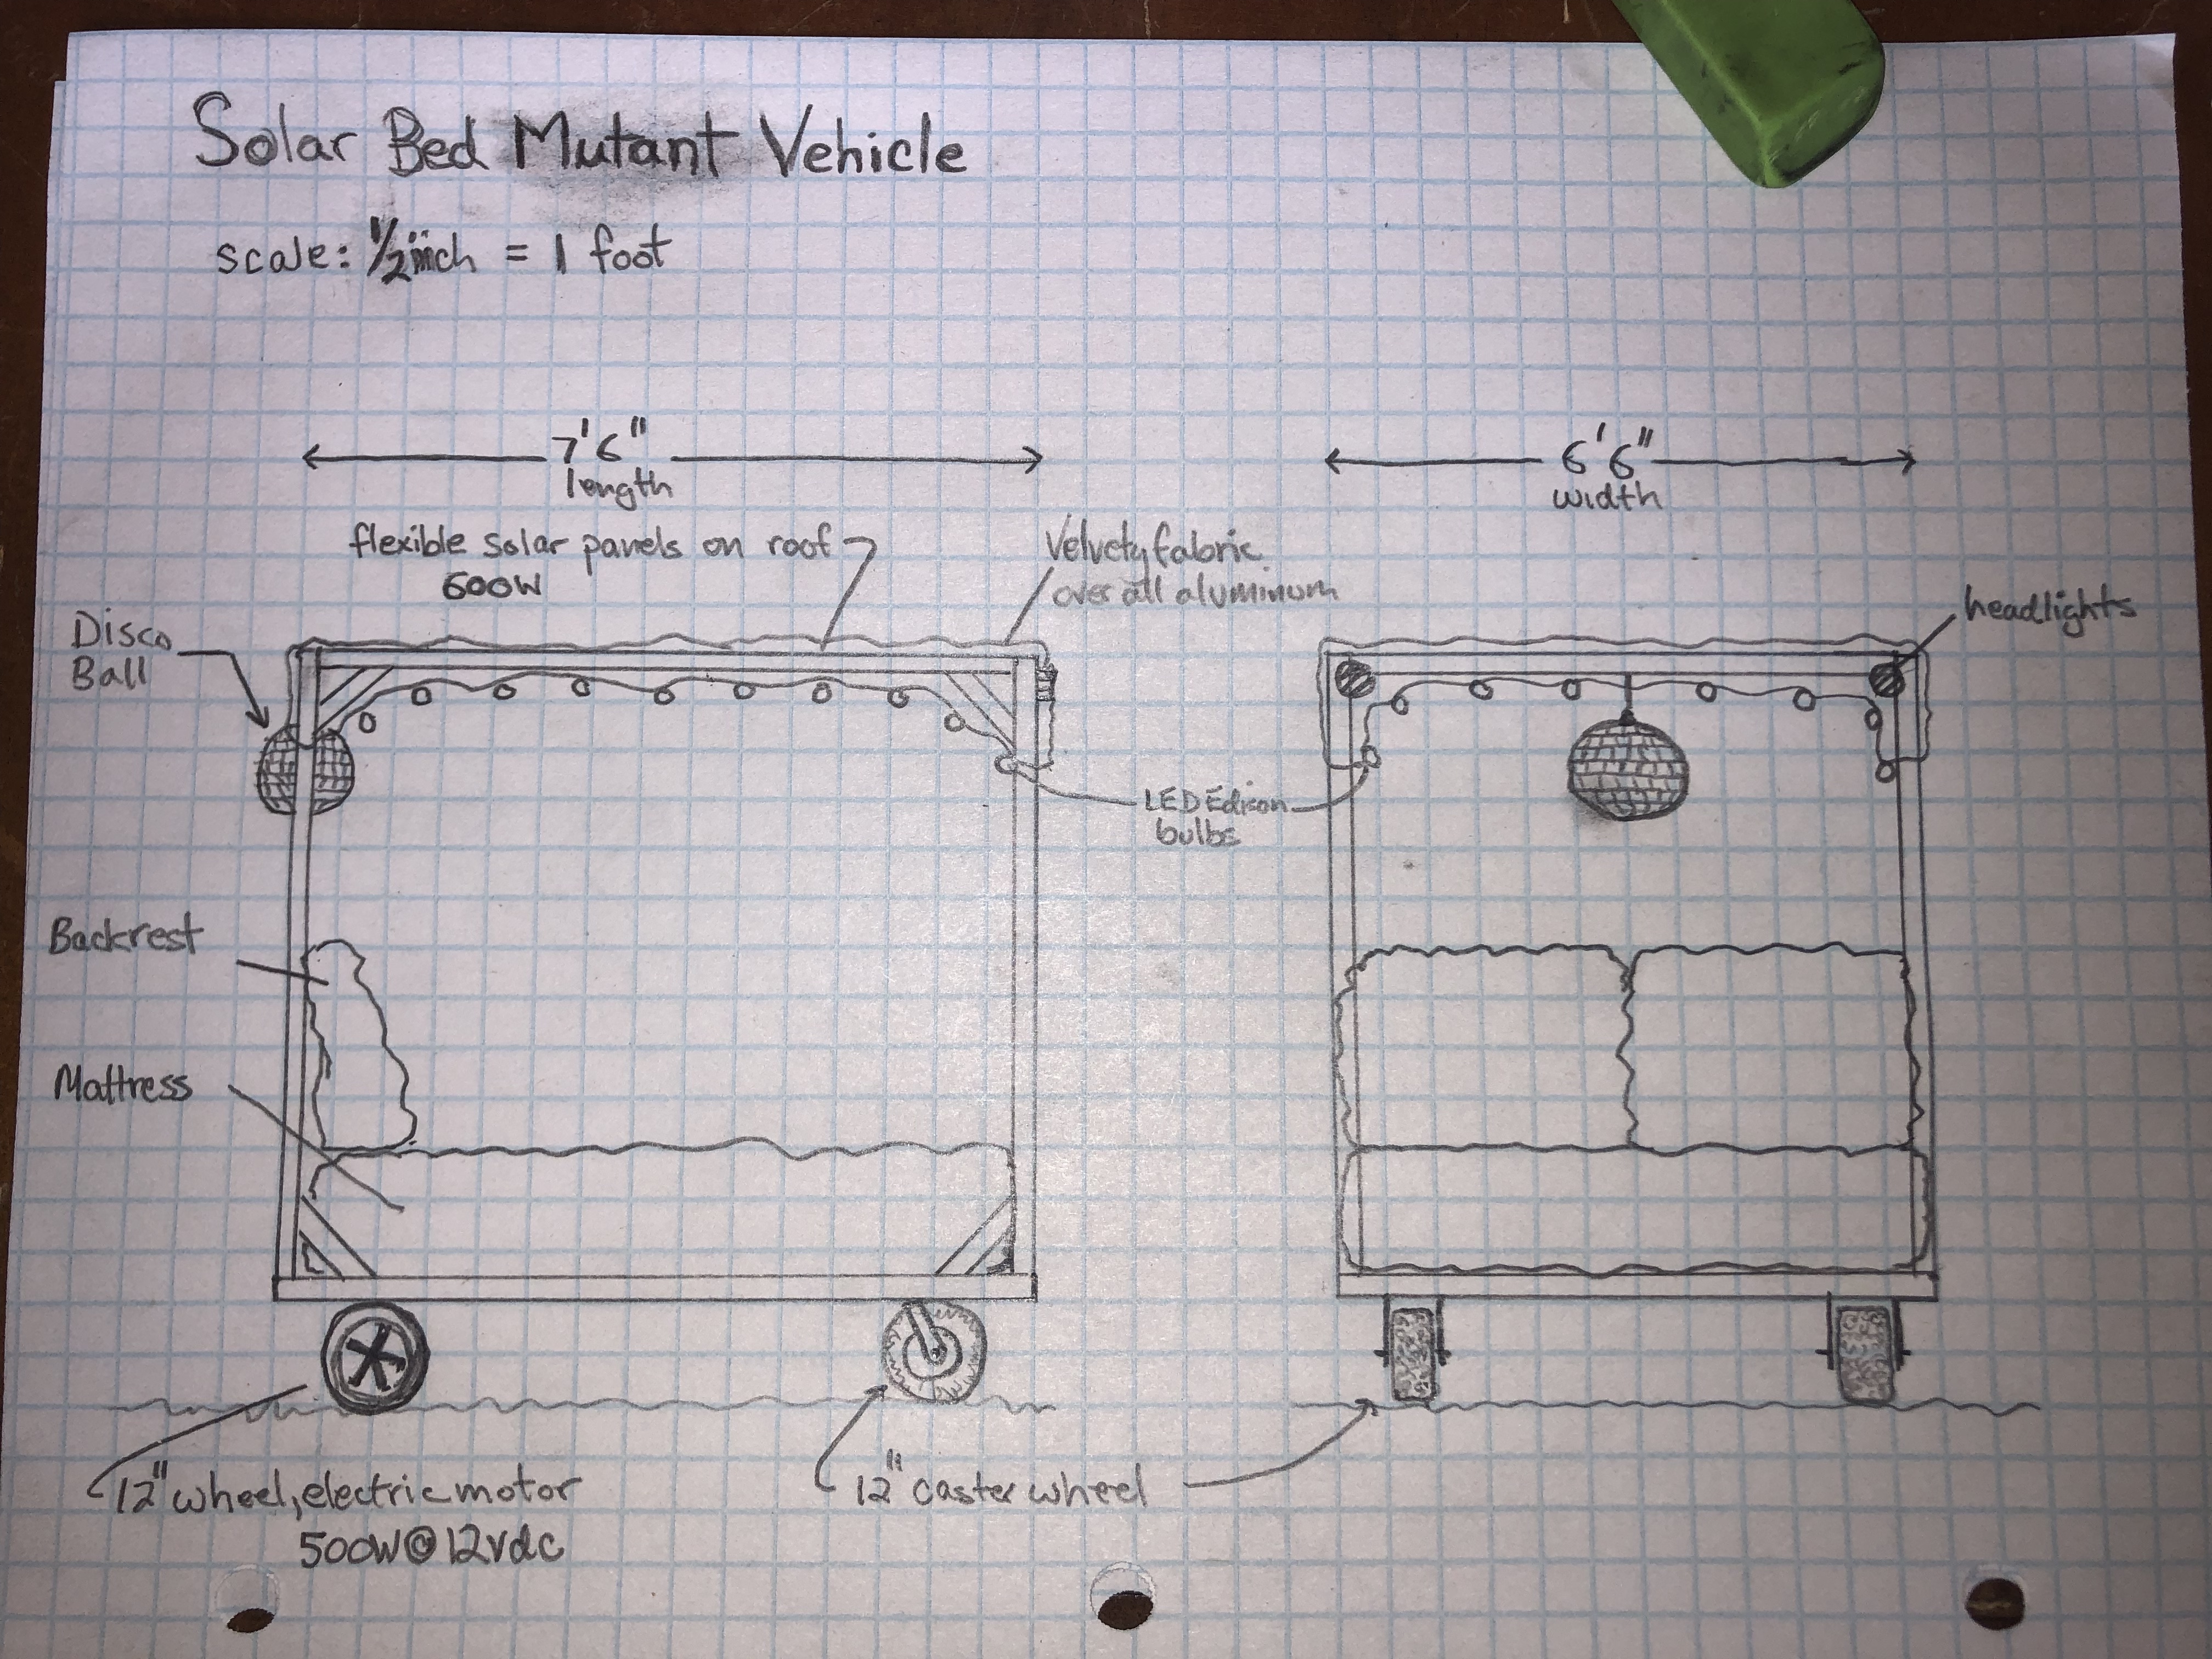 Solar Bed Mutant Vehicle
scale: 1/2 inch = 1 foot
7'6"
length
6'6"
width
flexible solar panels on roof
600W
Velvety fabric
over all aluminum
headlights
Disco
Ball
LED Edison
bulbs
Backrest
Mattress
12" wheel, electric motor
500W@12vdc
12" caster wheel